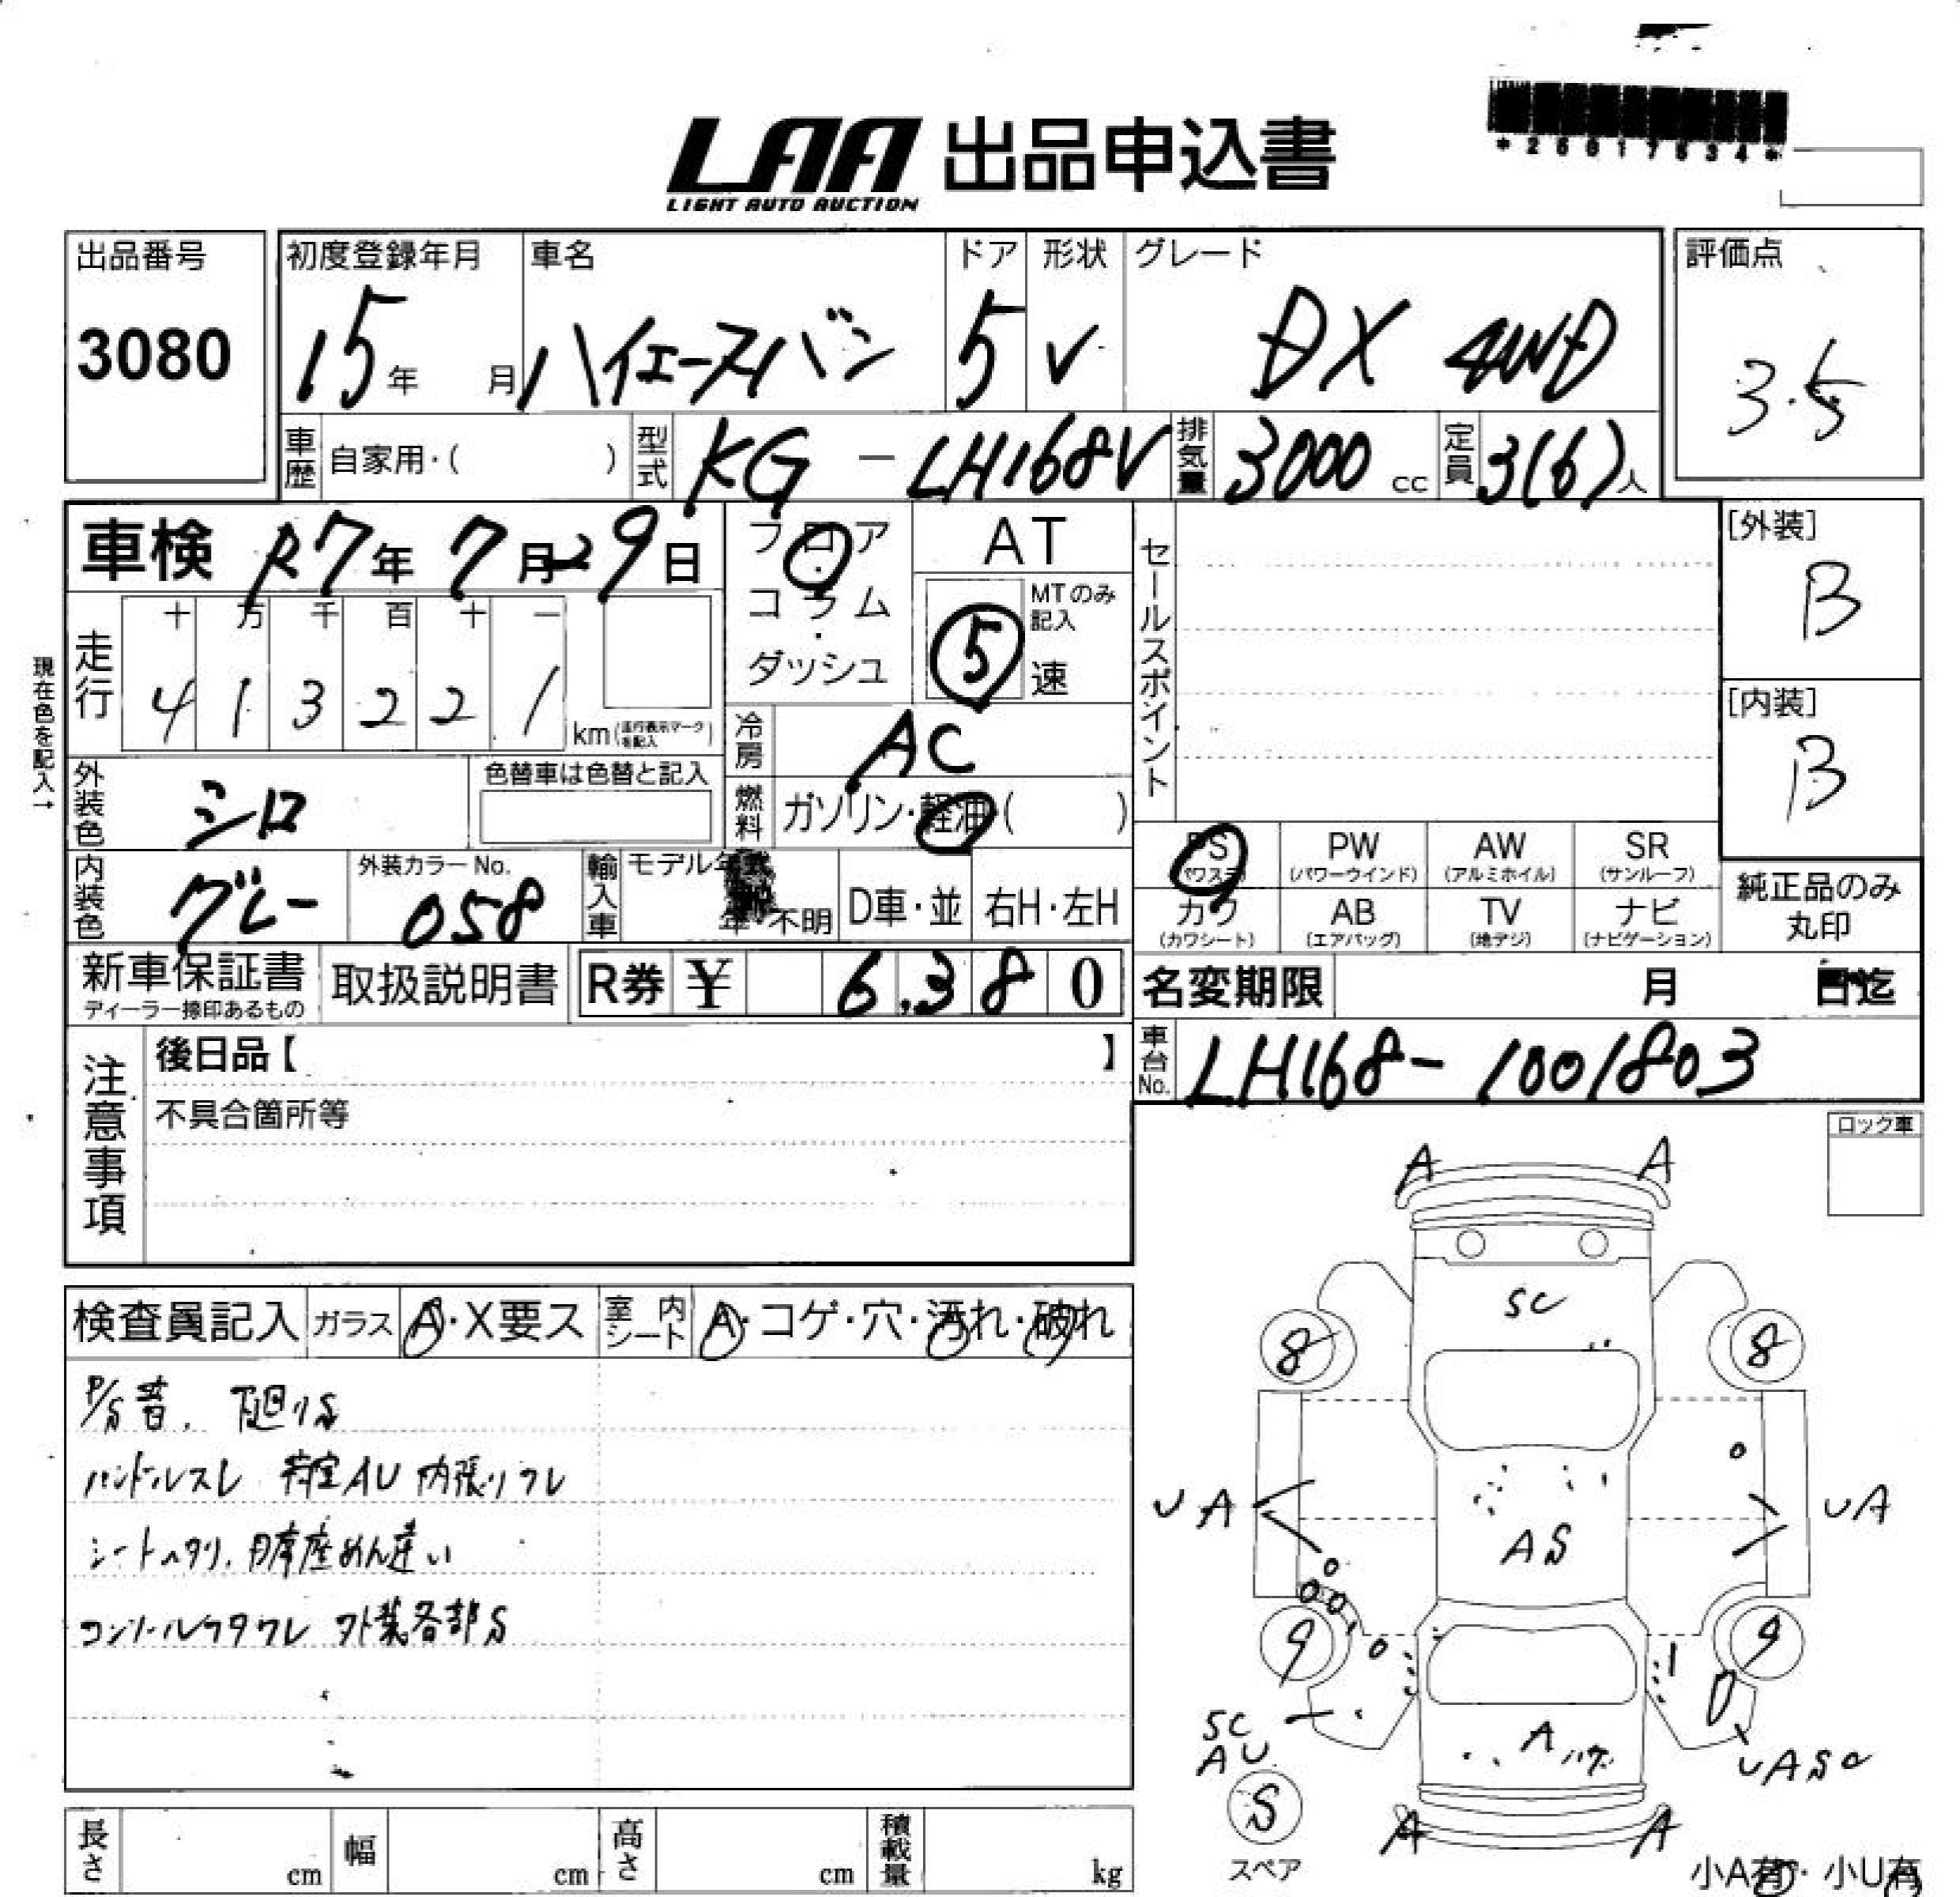 LAA 出品申込書
LIGHT AUTO AUCTION
出品番号
3080
初度登録年月
15年 月
車名
ハイエースバン
ドア
5
形状
V
グレード
DX 4WD
評価点
3.5
車歴 自家用・( )
型式 KG-LH168V
排気量 3000 cc
定員 3(6)人
車検 R7年 7月29日
フロア・コラム・ダッシュ
AT
MTのみ記入
5速
セールスポイント
[外装]
B
[内装]
B
現在色を記入→
走行
十 万 千 百 十 一
4 1 3 2 2 1 km
冷房 AC
外装色 シロ
色替車は色替と記入
燃料 ガソリン・軽油( )
内装色 グレー
外装カラーNo.
058
輸入車
モデル年式
年・不明
D車・並
右H・左H
PS PW AW SR
(パワステ) (パワーウインド) (アルミホイル) (サンルーフ)
カワ AB TV ナビ
(カワシート) (エアバッグ) (地デジ) (ナビゲーション)
純正品のみ
丸印
新車保証書
ディーラー捺印あるもの
取扱説明書
R券 ¥ 6,380
名変期限 月 日迄
車台No. LH168-1001803
注意事項
後日品【 】
不具合箇所等
ロック車
検査員記入 ガラス A・X要ス
室内シート A・コゲ・穴・汚れ・破れ
P/S昔. 下廻りS
ハンドルスレ 荷室AU 内張りワレ
シートヘタリ.
コンソールフタワレ 外装各部S
A A
SC
8 8
UA UA
AS
9 9
SC
AU
A ハゲ
UASC
S
スペア
A A
小A有・小U有
長さ cm
幅 cm
高さ cm
積載量 kg